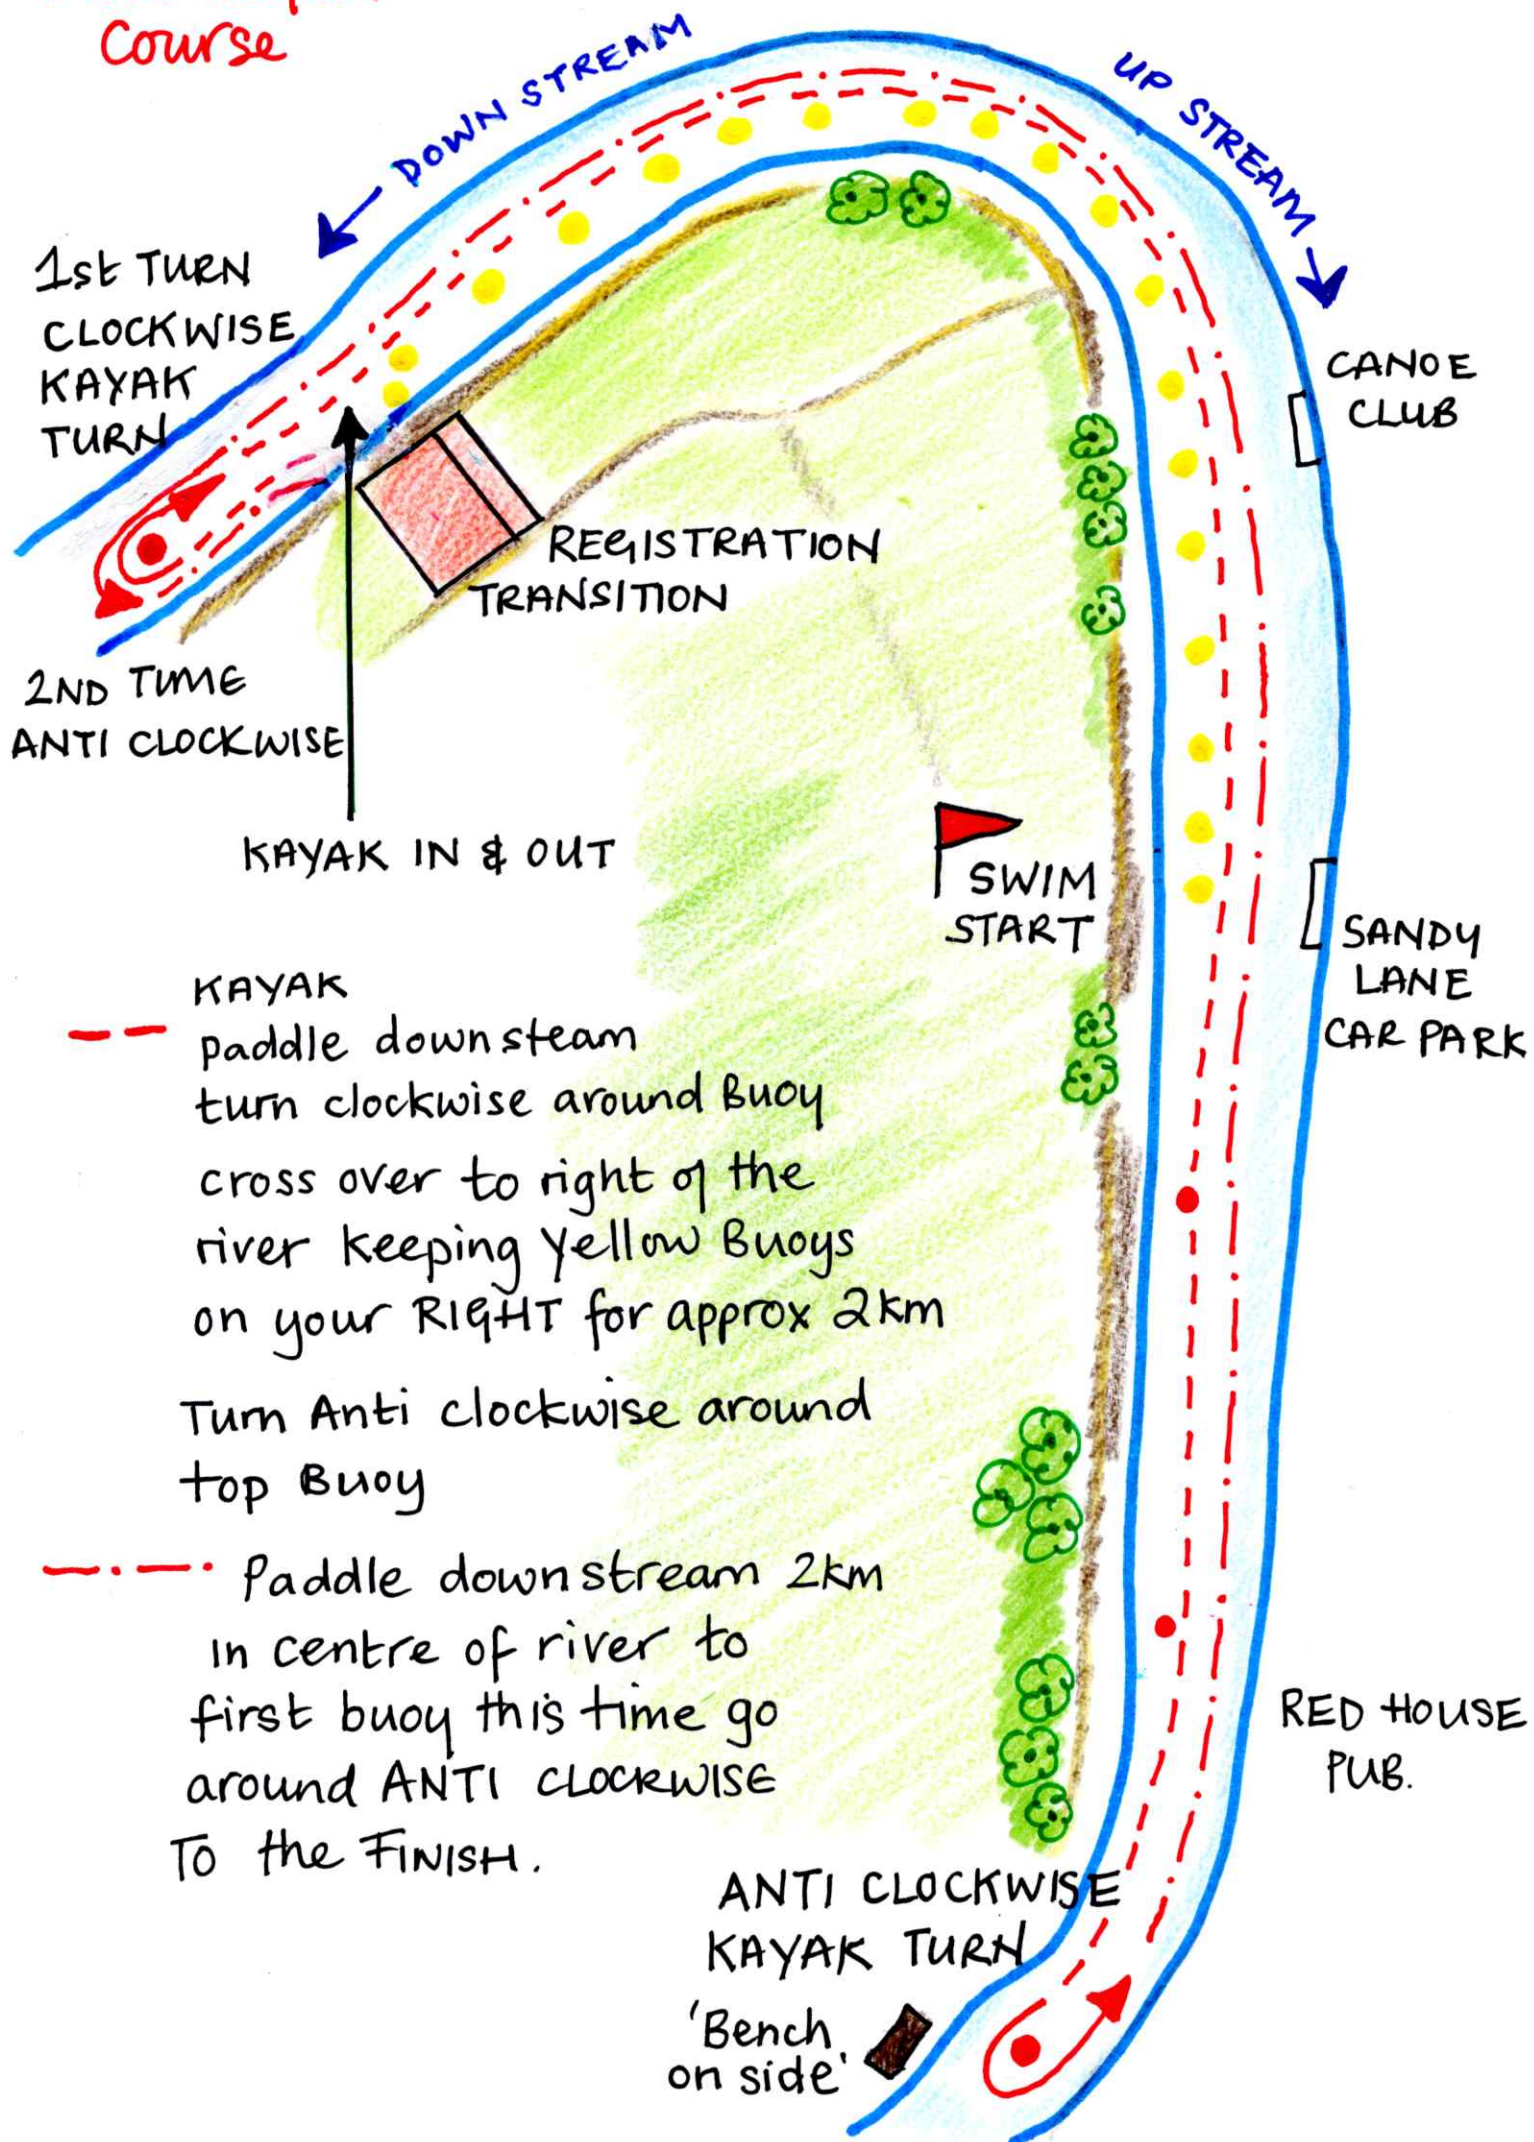 Course
DOWN STREAM
UP STREAM
1st TURN
CLOCKWISE
KAYAK
TURN
CANOE
CLUB
REGISTRATION
TRANSITION
2ND TIME
ANTI CLOCKWISE
KAYAK IN & OUT
SWIM
START
SANDY
LANE
CAR PARK
KAYAK
paddle downsteam
turn clockwise around Buoy
cross over to right of the
river keeping Yellow Buoys
on your RIGHT for approx 2km
Turn Anti clockwise around
top Buoy
Paddle downstream 2km
in centre of river to
first buoy this time go
around ANTI CLOCKWISE
To the FINISH.
RED HOUSE
PUB.
ANTI CLOCKWISE
KAYAK TURN
'Bench
on side'